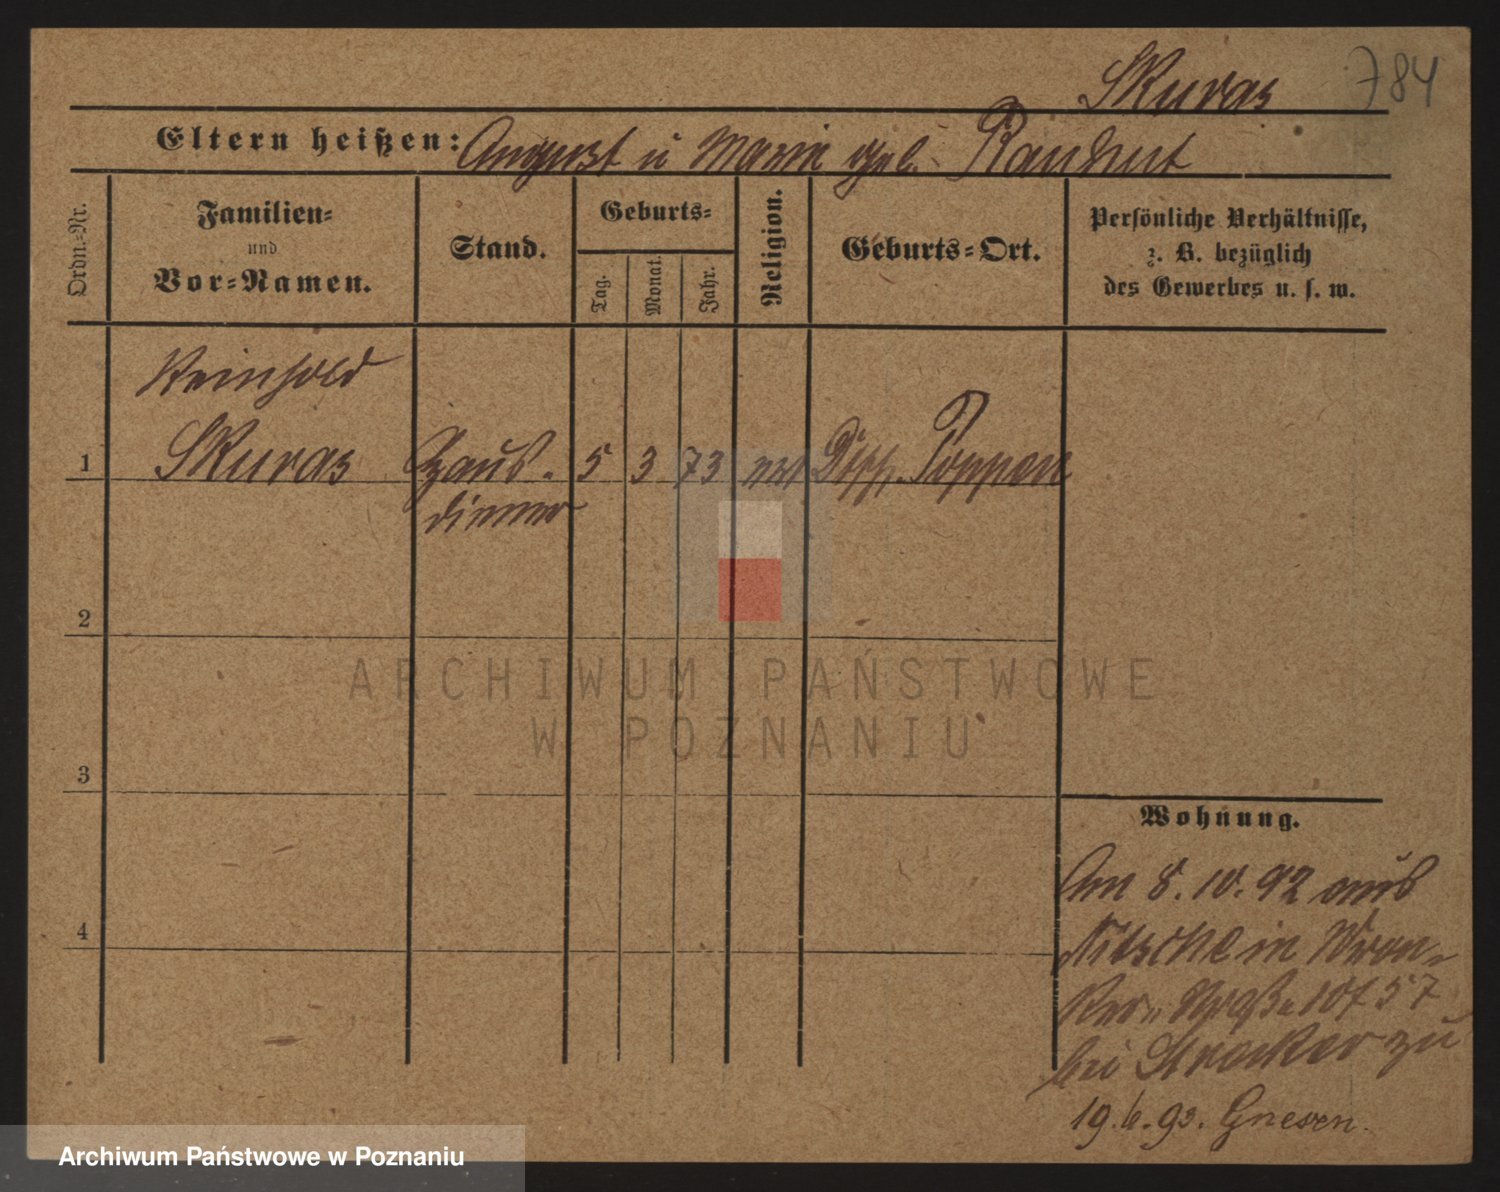 Skuras 784
Eltern heißen: August u Marie geb. Rauhut
Ordn.-Nr.
Familien-
und
Vor-Namen.
Stand.
Geburts-
Tag.
Monat.
Jahr.
Religion.
Geburts-Ort.
Persönliche Verhältnisse,
z. B. bezüglich
des Gewerbes u. s. w.
Reinhold
1 Skuras Haus- 5 3 73 Poppen
diener
2
3
4
Wohnung.
Am 8.10.92 aus
Nitsche in Wron-
ker-Straße 57
bei Stracker zu
19.6.93. Gnesen.
ARCHIWUM PAŃSTWOWE
W POZNANIU
Archiwum Państwowe w Poznaniu